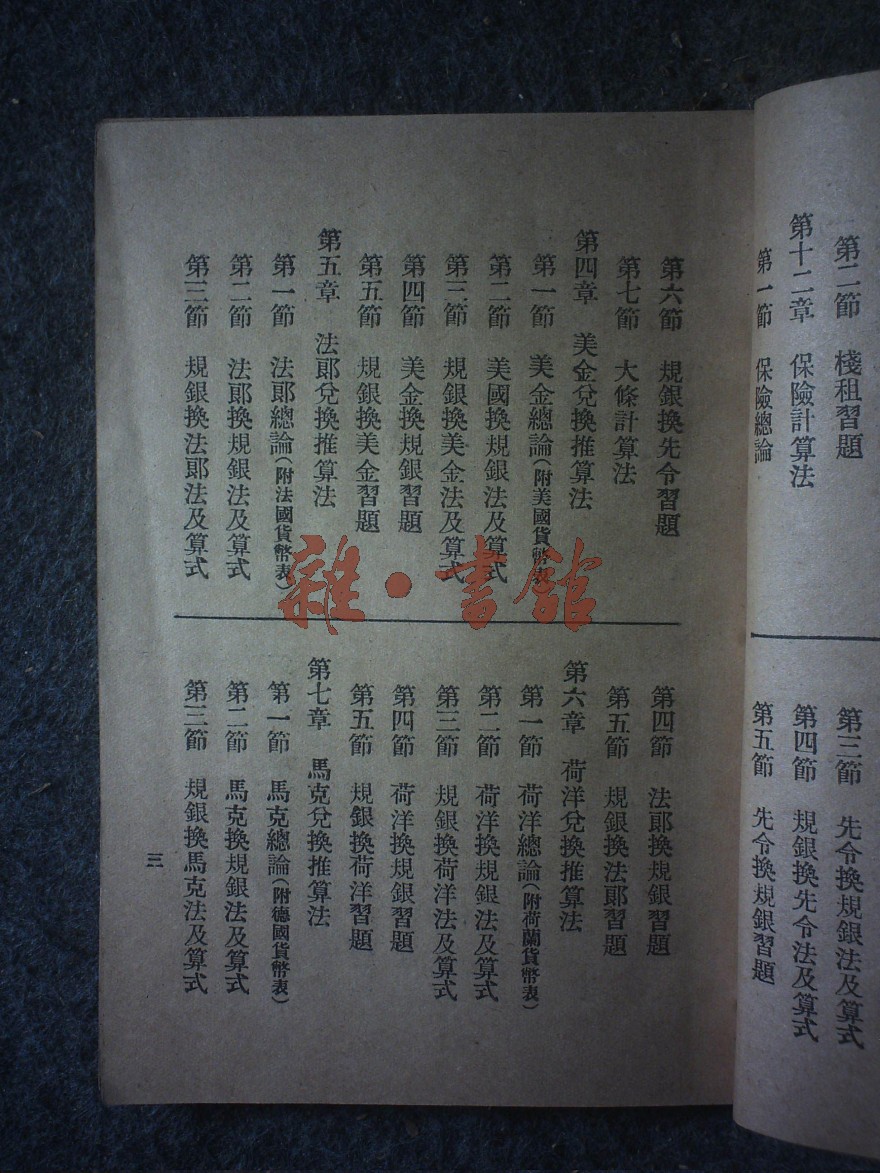 第二節　棧租習題
第十二章　保險計算法
第一節　保險總論
第三節　先令換規銀法及算式
第四節　規銀換先令法及算式
第五節　先令換規銀習題
第六節　規銀換先令習題
第七節　大條計算法
第四章　美金兌換推算法
第一節　美金總論(附美國貨幣表)
第二節　美國換規銀法及算式
第三節　規銀換美金法及算式
第四節　美金換規銀習題
第五節　規銀換美金習題
第五章　法郎兌換推算法
第一節　法郎總論(附法國貨幣表)
第二節　法郎換規銀法及算式
第三節　規銀換法郎法及算式
第四節　法郎換規銀習題
第五節　規銀換法郎習題
第六章　荷洋兌換推算法
第一節　荷洋總論(附荷蘭貨幣表)
第二節　荷洋換規銀法及算式
第三節　規銀換荷洋法及算式
第四節　荷洋換規銀習題
第五節　規銀換荷洋習題
第七章　馬克兌換推算法
第一節　馬克總論(附德國貨幣表)
第二節　馬克換規銀法及算式
第三節　規銀換馬克法及算式
三
雜·書館